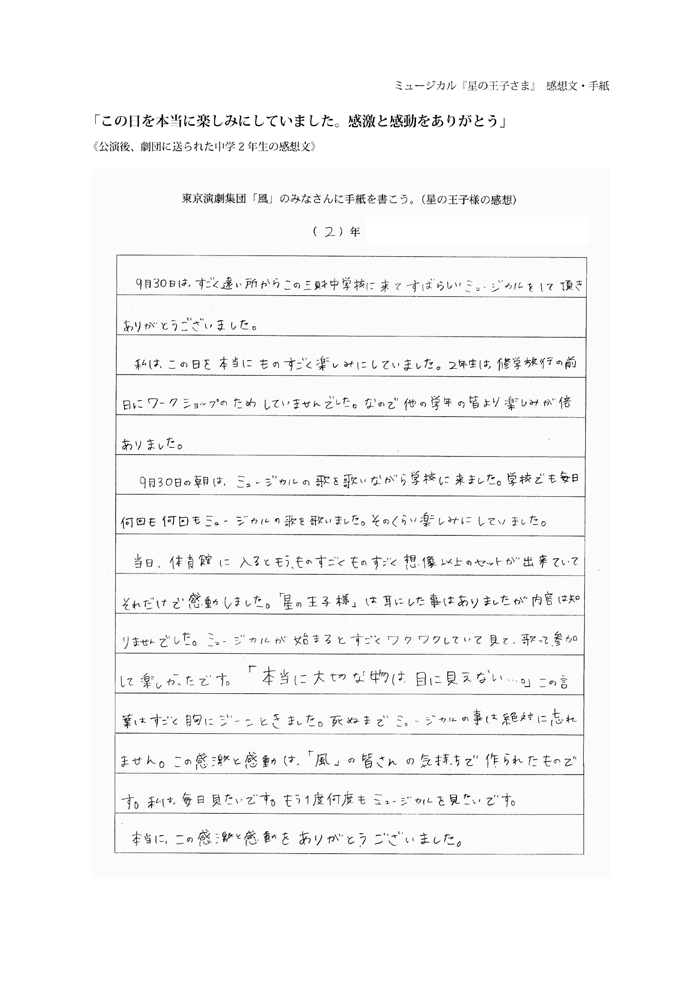 ミュージカル『星の王子さま』 感想文・手紙
「この日を本当に楽しみにしていました。感激と感動をありがとう」
《公演後、劇団に送られた中学2年生の感想文》
東京演劇集団「風」のみなさんに手紙を書こう。（星の王子様の感想）
（2）年
9月30日は、すごく遠い所からこの三財中学校に来てすばらしいミュージカルをして頂き
ありがとうございました。
私は、この日を本当にものすごく楽しみにしていました。2年生は、修学旅行の前
日にワークショップのためしていませんでした。なので他の学年の皆より楽しみが倍
ありました。
9月30日の朝は、ミュージカルの歌を歌いながら学校に来ました。学校でも毎日
何回も何回もミュージカルの歌を歌いました。そのくらい楽しみにしていました。
当日、体育館に入るともう、ものすごくものすごく想像以上のセットが出来ていて
それだけで感動しました。「星の王子様」は耳にした事はありましたが内容は知
りませんでした。ミュージカルが始まるとすごくワクワクしていて見て、歌って参加
して楽しかったです。「本当に大切な物は目に見えない…。」この言
葉はすごく胸にジーンときました。死ぬまでミュージカルの事は絶対に忘れ
ません。この感激と感動は、「風」の皆さんの気持ちで作られたもので
す。私は、毎日見たいです。もう1度何度もミュージカルを見たいです。
本当に、この感激と感動をありがとうございました。